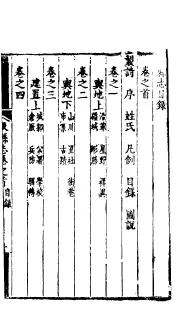 志目錄
卷之首
製詩 序 姓氏 凡例 目錄 圖說
卷之一
輿地上
沿革 星野 祥異
疆域 形勝
卷之二
輿地下
山川 里社 街巷
市集 古蹟
卷之三
建置上
城郭 公署 學校
倉廒 兵防
卷之四